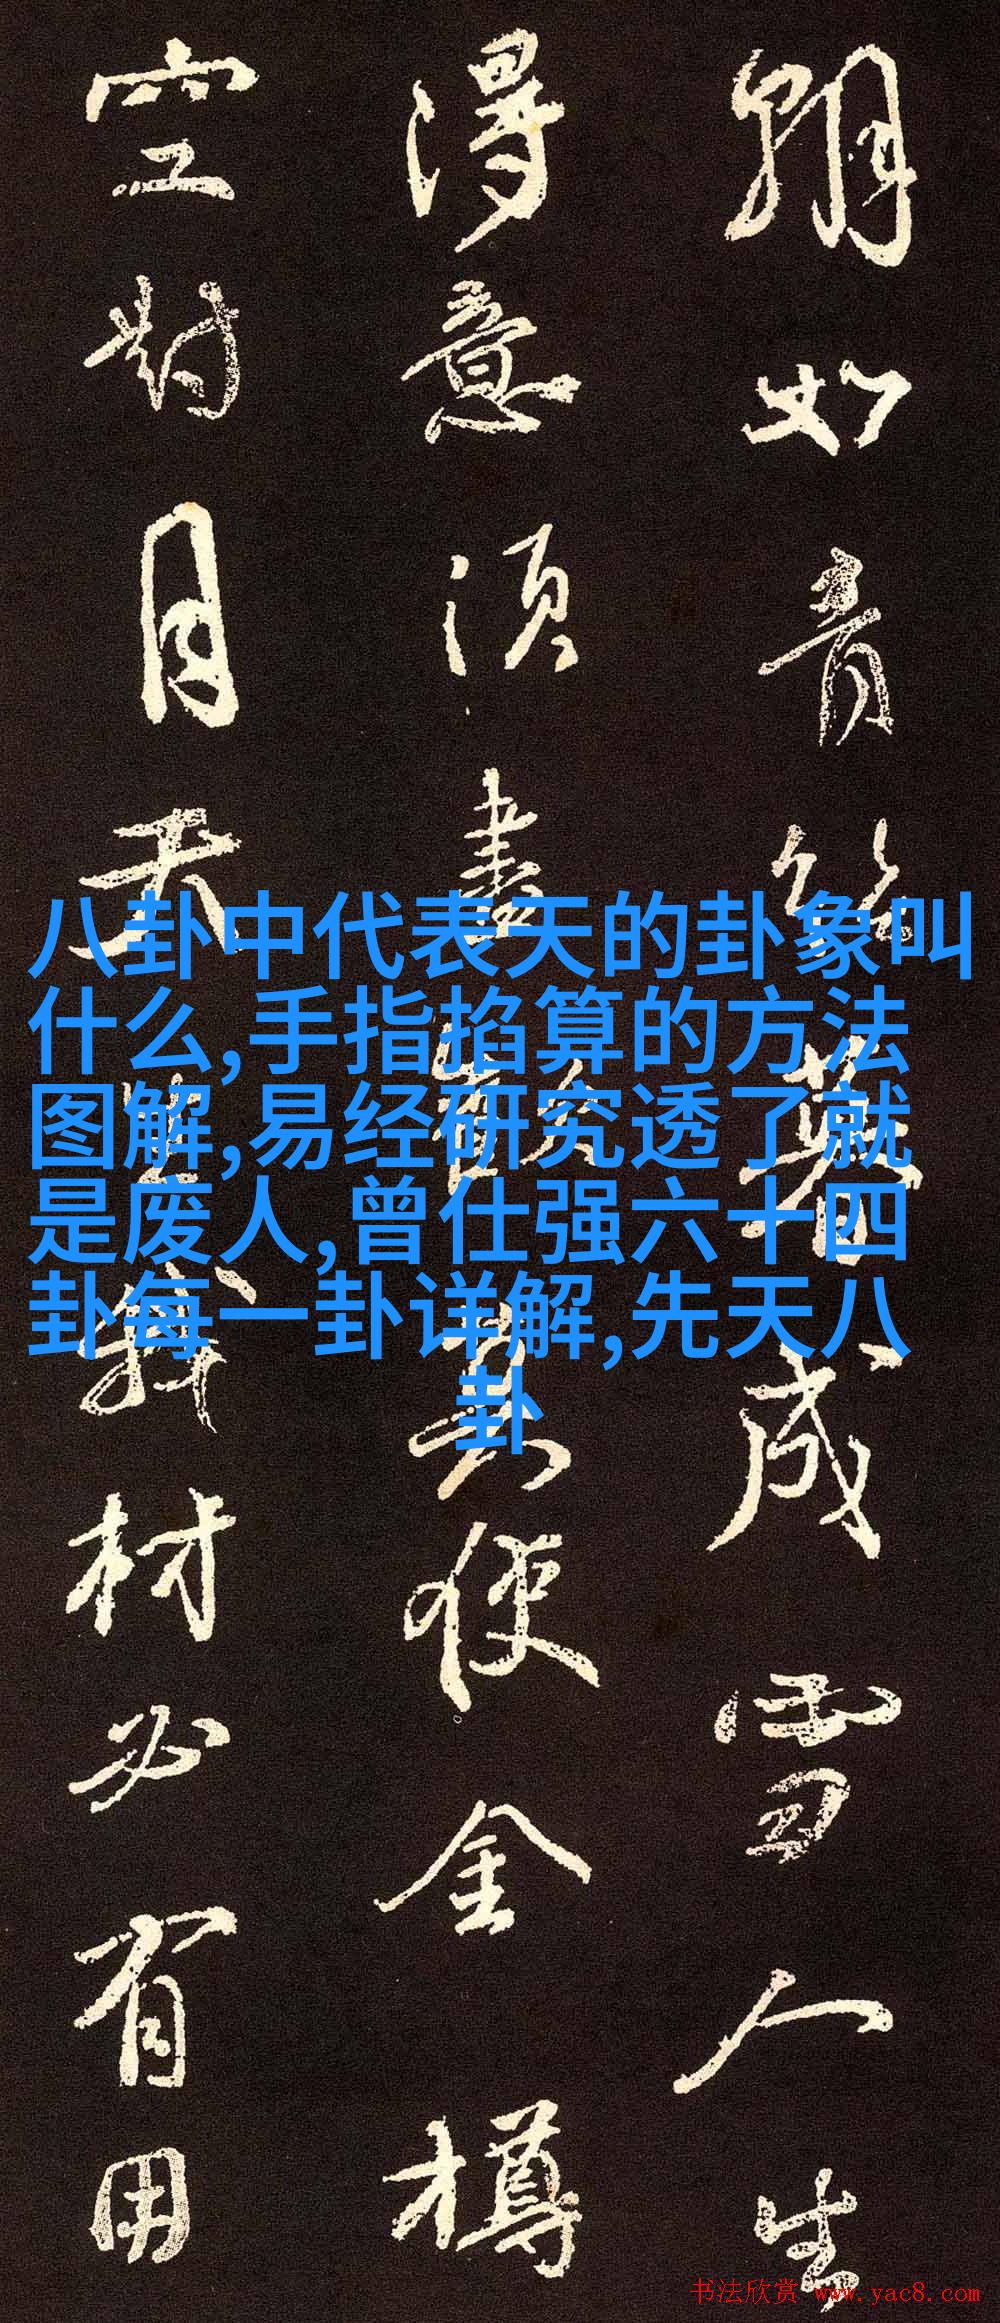 朝如青絲暮成雪人生
得意須盡歡莫使金樽
空對月天生我材必有用
八卦中代表天的卦象叫
什么,手指掐算的方法
图解,易经研究透了就
是废人,曾仕强六十四
卦每一卦详解,先天八
卦
书法欣赏 www.yac8.com